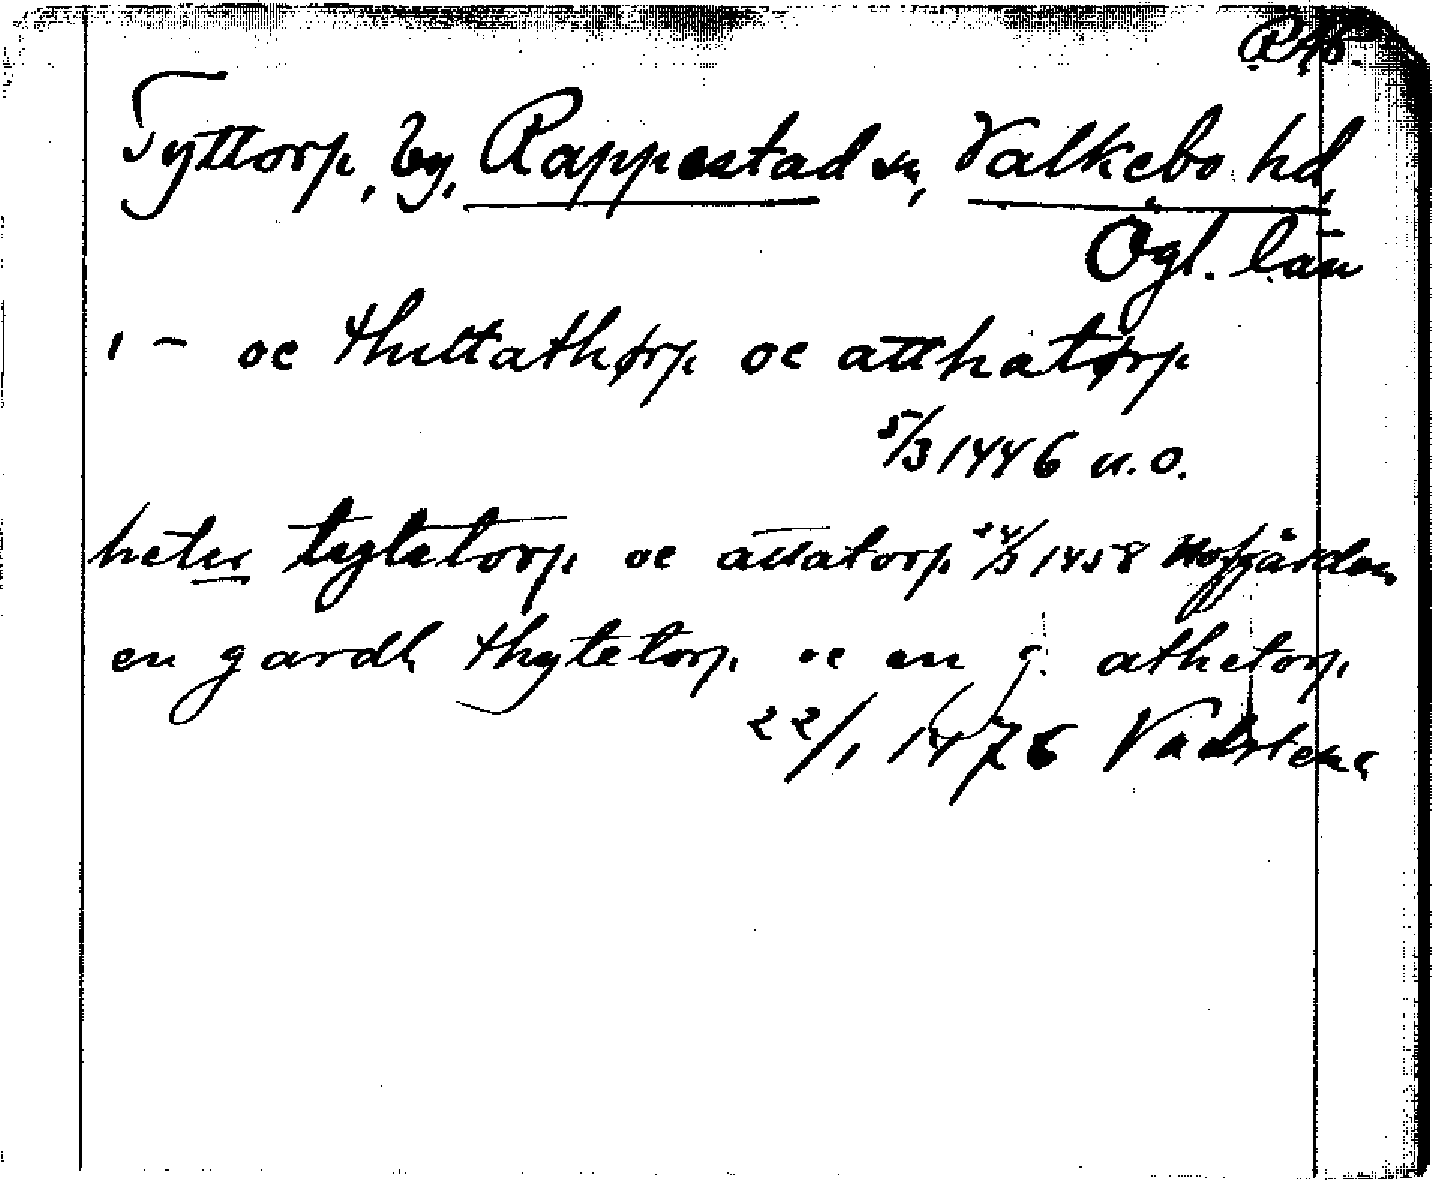 RAp.
Tyttorp, by, Rappestad sn, Valkebo hd,
Ögl. län
1 – oc thuttathørp oc atthatørp
5/3 1446 u.o.
heter tyteto​rp oc attatorp 24/3 1458
en gardh thytetorp oc en g. athetorp
22/1 1476 Vadstena